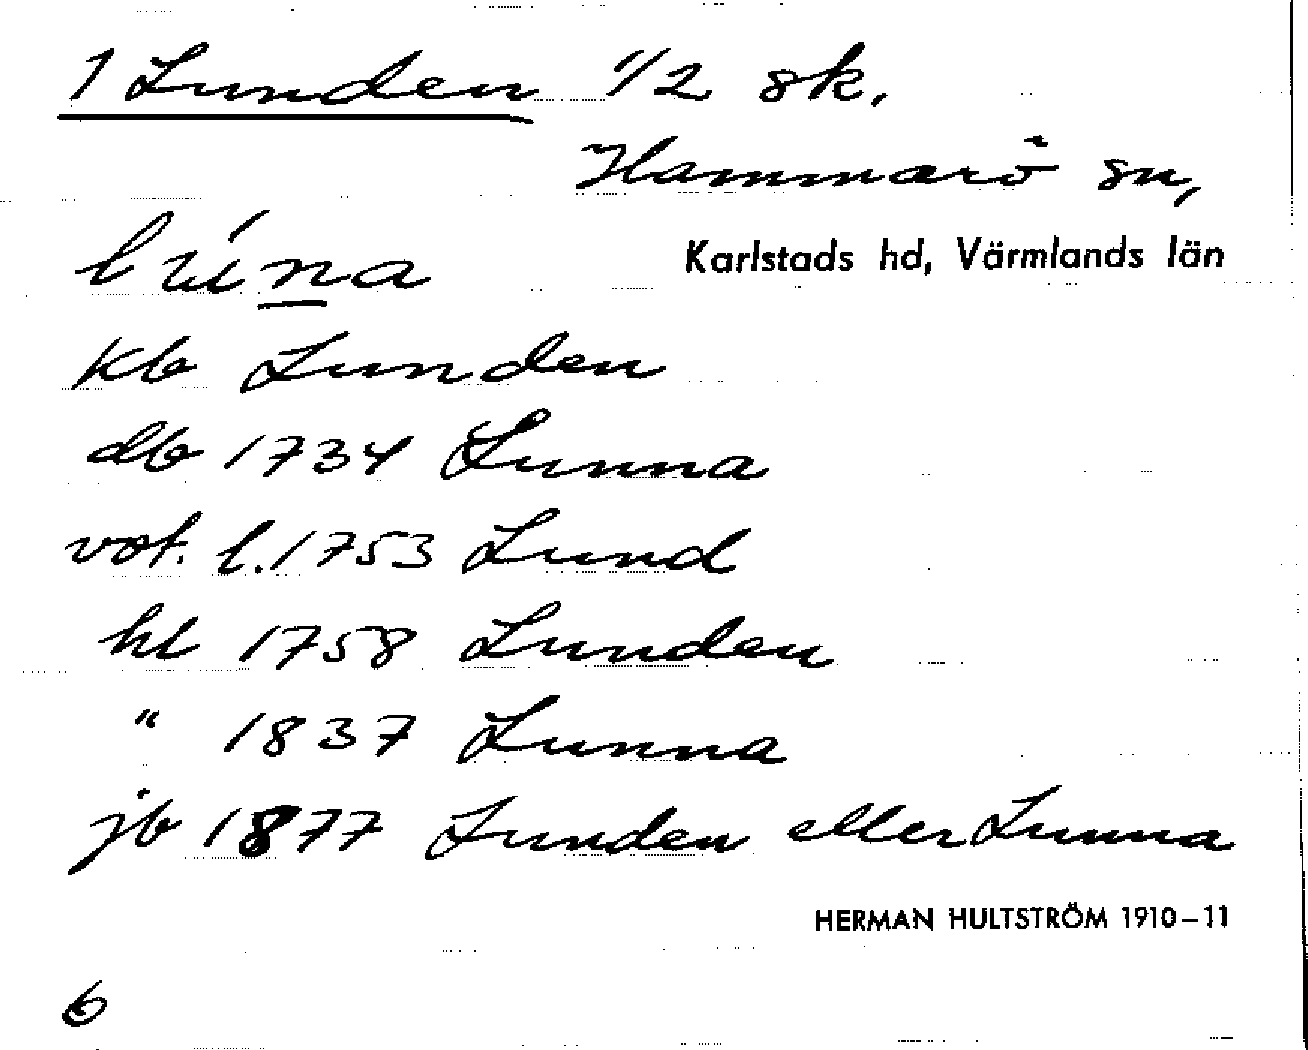 1 Lunden 1/2 sk.
Hammarö sn,
lúna
Karlstads hd, Värmlands län
Kb Lunden
db 1734 Lunna
vot. l. 1753 Lund
hl 1758 Lunden
" 1837 Lunna
jb 1877 Lunden eller Lunna
HERMAN HULTSTRÖM 1910–11
6